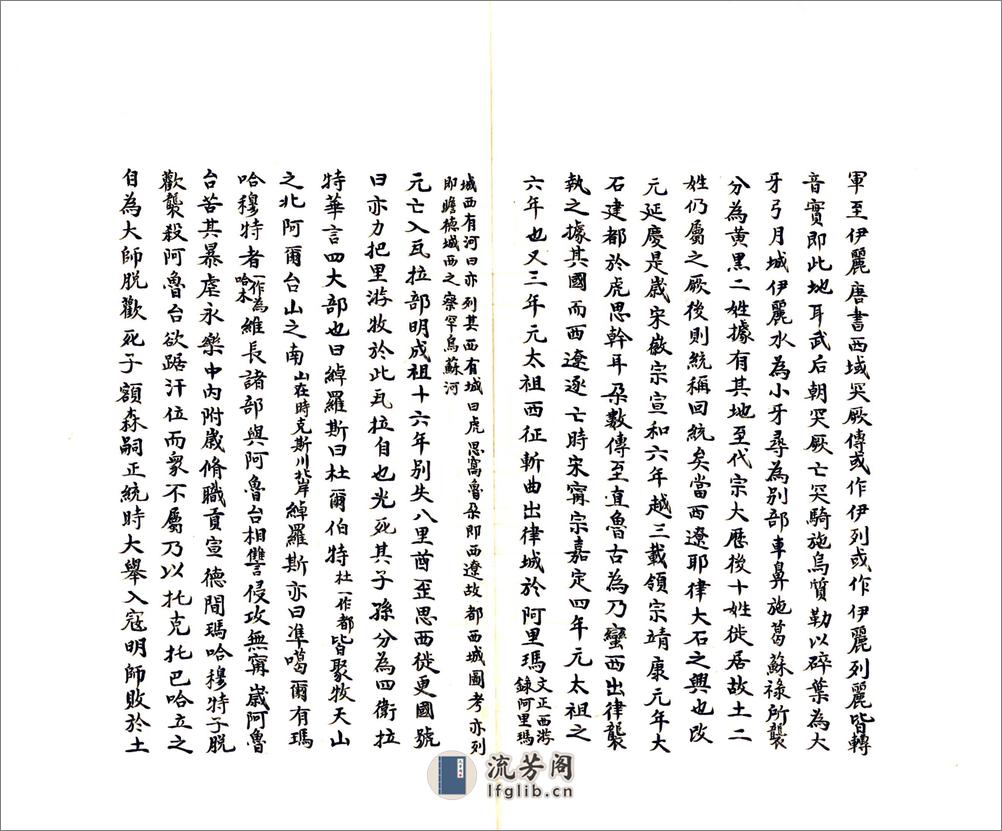 軍至伊麗唐書西域突厥傳或作伊列或作伊麗列麗皆轉
音實即此地耳武后朝突厥亡突騎施烏質勒以碎葉為大
牙弓月城伊麗水為小牙尋為別部車鼻施葛蘇祿所襲
分為黃黑二姓據有其地至代宗大歷後十姓徙居故土二
姓仍屬之厥後則統稱回紇矣當西遼耶律大石之興也改
元延慶是歲宋徽宗宣和六年越三載領宗靖康元年大
石建都於虎思幹耳朶數傳至直魯古為乃蠻西出律襲
執之據其國而西遼遂亡時宋甯宗嘉定四年元太祖之
六年也又三年元太祖西征斬曲出律城於阿里瑪文正西游錄阿里瑪
城西有河曰亦列其西有城曰虎思窩魯朶即西遼故都西域圖考亦列
即瞻德城西之察罕烏蘇河
元亡入瓦拉部明成祖十六年別失八里酋歪思西徙更國號
曰亦力把里游牧於此瓦拉自也光死其子孫分為四衛拉
特華言四大部也曰綽羅斯曰杜爾伯特杜一作都皆聚牧天山
之北阿爾台山之南山在時克斯川北岸綽羅斯亦曰準噶爾有瑪
哈穆特者一作為哈木維長諸部與阿魯台相讐侵攻無甯歲阿魯
台苦其暴虐永樂中內附歲脩職貢宣德間瑪哈穆特子脫
歡襲殺阿魯台欲踞汗位而衆不屬乃以托克托巴哈立之
自為大師脫歡死子額森嗣正統時大舉入寇明師敗於土
流芳閣
lfglib.cn